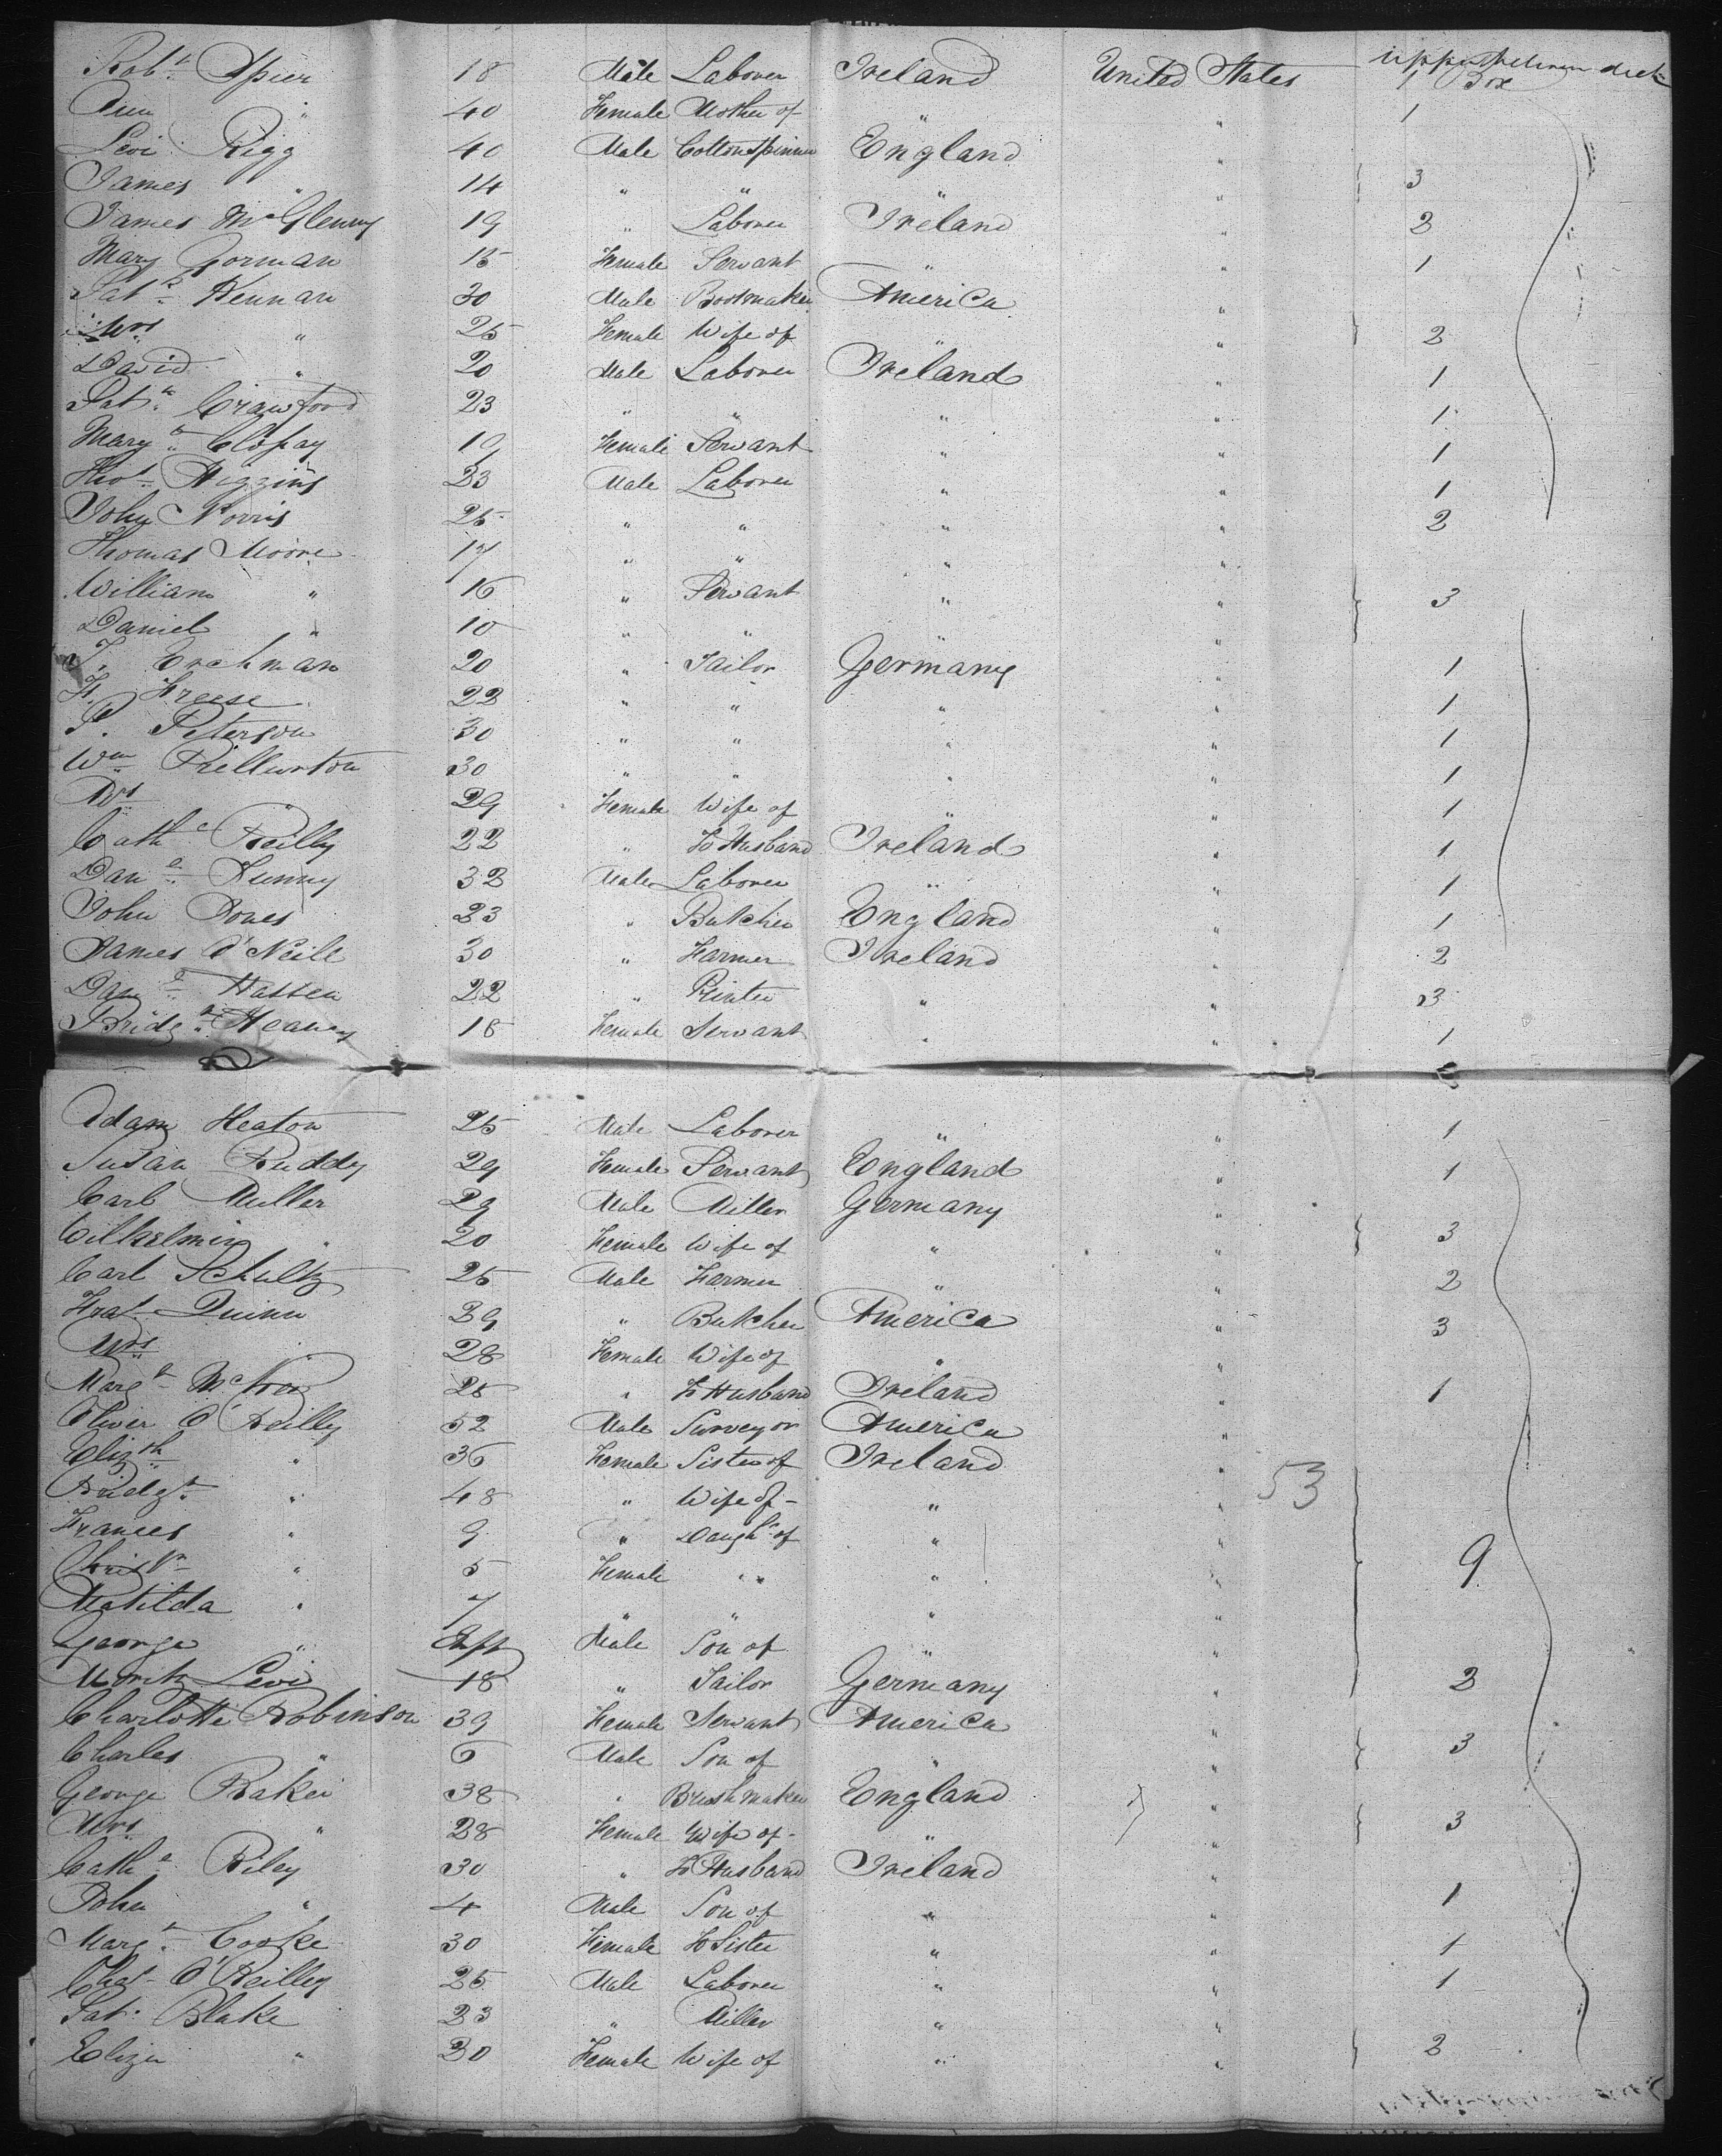 Robt. Spier 18 Male Laborer Ireland United States 1 Box upper between deck
Ann " 40 Female Mother of " " 1
Levi Rigg 40 Male Cotton Spinner England "
James " 14 " " " " 3
James McGlenny 19 " Laborer Ireland " 2
Mary Gorman 15 Female Servant " " 1
Patk. Kennan 30 Male Bootmaker America "
Mrs " 25 Female Wife of " " 2
David " 20 Male Laborer Ireland " 1
Patk. Crawford 23 " " " " 1
Mary Female Servant " " 1
Thos. Higgins 23 Male Laborer " " 1
John Norris 25 " " " " 2
Thomas Moore 17 " " " "
William " 16 " Servant " " 3
Daniel " 10 " " " "
Erchman 20 " Tailor Germany " 1
H. Freese 22 " " " " 1
P. Peterson 30 " " " " 1
Wm 30 " " " " 1
Mrs " 29 Female Wife of " " 1
Cathe Reilly 22 " To Husband Ireland " 1
Danl. 32 Male Laborer " " 1
John Jones 23 " Butcher England " 1
James O'Neill 30 " Farmer Ireland " 2
Danl. Hassen 22 " Printer " " 3
Bridgt. Heaney 18 Female Servant " " 1
Adam Heaton 25 Male Laborer " " 1
Susan Ruddy 29 Female Servant England " 1
Carl Muller 29 Male Miller Germany "
Wilhelmin " 20 Female Wife of " " 3
Carl Schultz 25 Male Farmer " " 2
Quinn 29 " Butcher America " 3
Mrs " 28 Female Wife of " "
Margt. 25 " To Husband Ireland " 1
Oliver O'Reilly 52 Male Surveyor America "
Elizth " 36 Female Sister of Ireland "
Bridgt. " 48 " Wife of " " 53
Frances " 9 " Daughr of " "
Christn " 5 Female " " " " 9
Matilda " 7 " " " "
George " Inft Male Son of " "
Moritz Levi 18 " Tailor Germany " 2
Charlotte Robinson 39 Female Servant America "
Charles " 6 Male Son of " " 3
George Baker 38 " Brush maker England "
Mrs " 28 Female Wife of " " 3
Cathe Riley 30 " To Husband Ireland "
John " 4 Male Son of " " 1
Margt. Cooke 30 Female To Sister " " 1
Chas. O'Reilly 25 Male Laborer " " 1
Pat. Blake 23 " Miller " "
Eliza " 20 Female Wife of " " 2